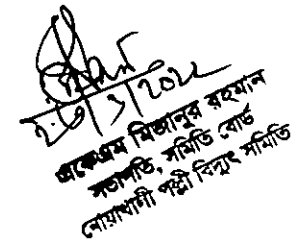 ২৩/১/২০২২
একেএম মিজানুর রহমান
সভাপতি, সমিতি বোর্ড
নোয়াখালী পল্লী বিদ্যুৎ সমিতি